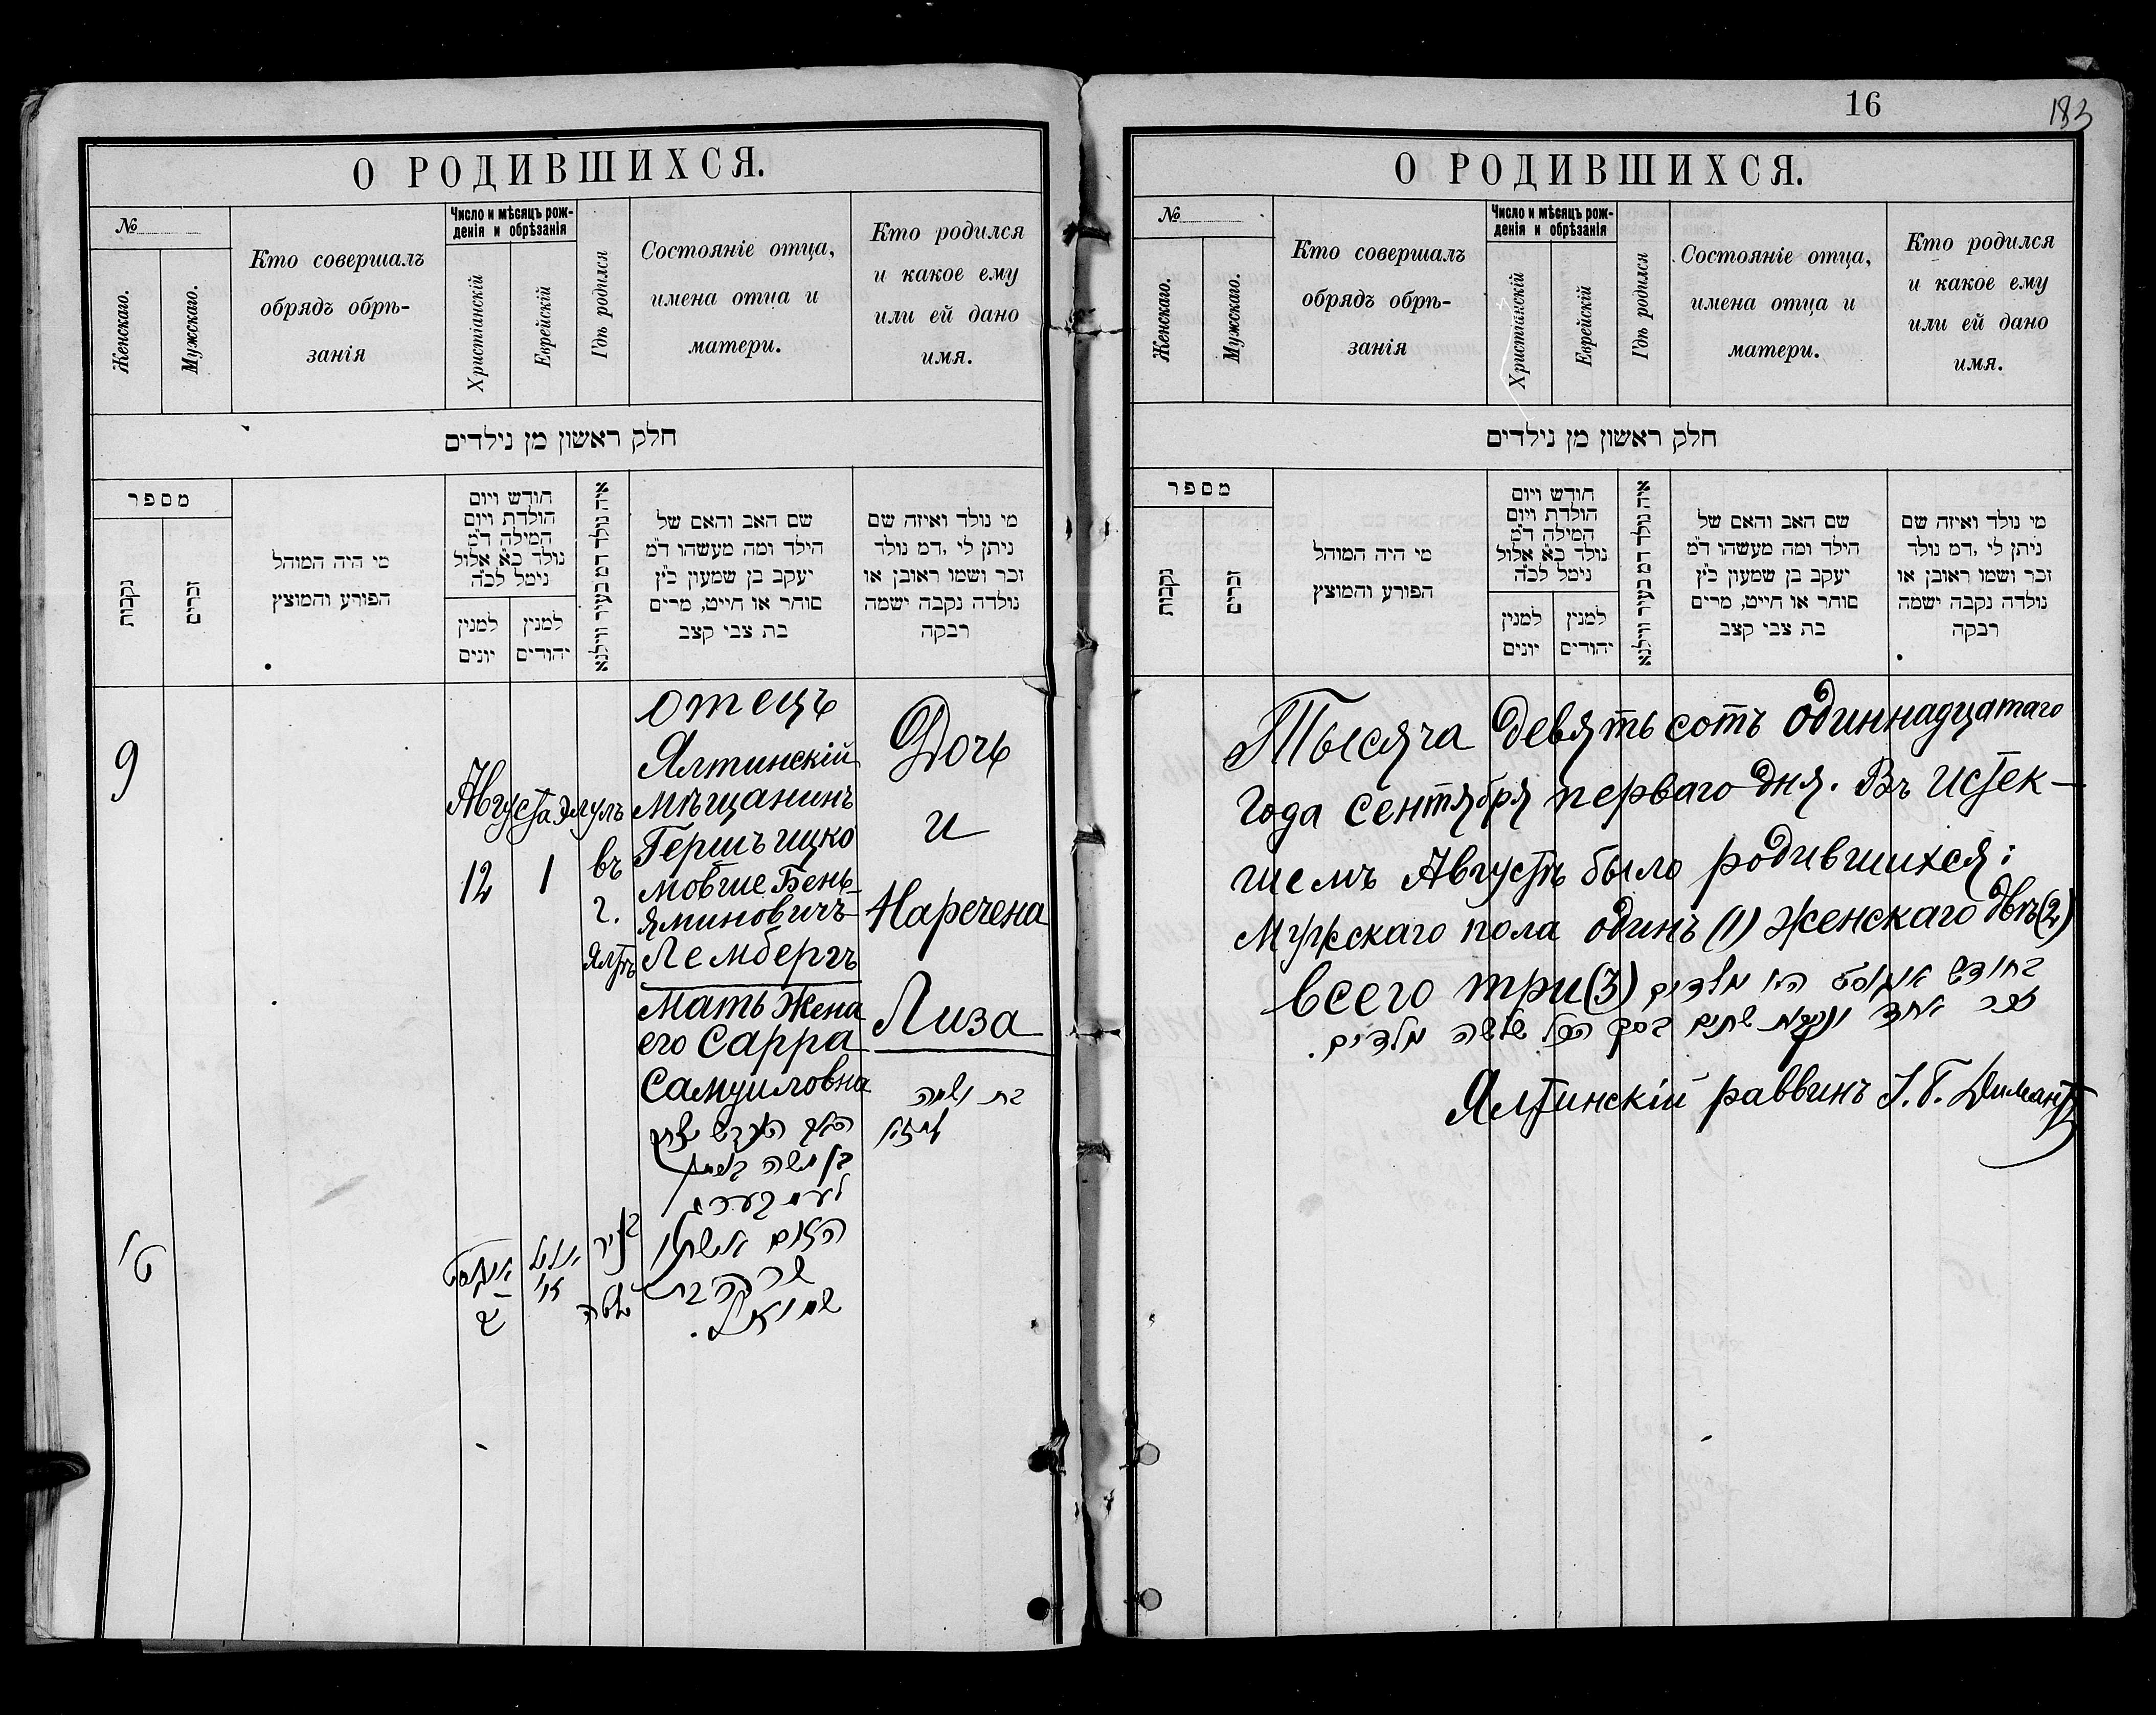 О РОДИВШИХСЯ.
№
Женскаго.
Мужскаго.
Кто совершалъ
обрядъ обрѣ-
занія
Число и мѣсяцъ рож-
денія и обрѣзанія
Христіанскій
Еврейскій
Гдѣ родился
Состояніе отца,
имена отца и
матери.
Кто родился
и какое ему
или ей дано
имя.
חלק ראשון מן נילדים
מספר
נקבות
זכרים
מי היה המוהל
הפורע והמוצץ
חודש ויום
הולדת ויום
המילה ד״מ
נולד כ״א אלול
נימל לכ״ה
למנין
יונים
למנין
יהודים
איה נולד דמ בעיר ווילנא
שם האב והאם של
הילד ומה מעשהו ד״מ
יעקב בן שמעון כ״ץ
סוחר או חייט, מרים
בת צבי קצב
מי נולד ואיזה שם
ניתן לי ,דמ נולד
זכר ושמו ראובן או
נולדה נקבה ישמה
רבקה
9
Августа
12
Элулъ
1
въ
г.
Ялтѣ
отецъ
Ялтинскій
мѣщанинъ
Гершъ ицко
мовше Бень-
яминовичъ
Лембергъ
Мать Жена
его Сарра
Самуиловна
Дочь
и
Наречена
Лиза
בת ושמה
ליזא
ט׳
אויגוסט
אלול
א׳
בעיר
יאלטה
בן משה
לעמבערג
האם אשתו
שרה בת
שמואל.
16
183
О РОДИВШИХСЯ.
№
Женскаго.
Мужскаго.
Кто совершалъ
обрядъ обрѣ-
занія
Число и мѣсяцъ рож-
денія и обрѣзанія
Христіанскій
Еврейскій
Гдѣ родился
Состояніе отца,
имена отца и
матери.
Кто родился
и какое ему
или ей дано
имя.
חלק ראשון מן נילדים
מספר
נקבות
זכרים
מי היה המוהל
הפורע והמוצץ
חודש ויום
הולדת ויום
המילה ד״מ
נולד כ״א אלול
נימל לכ״ה
למנין
יונים
למנין
יהודים
איה נולד דמ בעיר ווילנא
שם האב והאם של
הילד ומה מעשהו ד״מ
יעקב בן שמעון כ״ץ
סוחר או חייט, מרים
בת צבי קצב
מי נולד ואיזה שם
ניתן לי ,דמ נולד
זכר ושמו ראובן או
נולדה נקבה ישמה
רבקה
Тысяча девятьсотъ одиннадцатаго
года сентября перваго дня. Въ истек-
шемъ Августѣ было родившихся:
Мужскаго пола одинъ (1) женскаго двѣ (2)
всего три (3) בחודש אויגוסט היו נולדים
זכר אחד ונקבות שתים בסך הכל שלשה נולדים.
Ялтинскій раввинъ І. Г. Димантъ